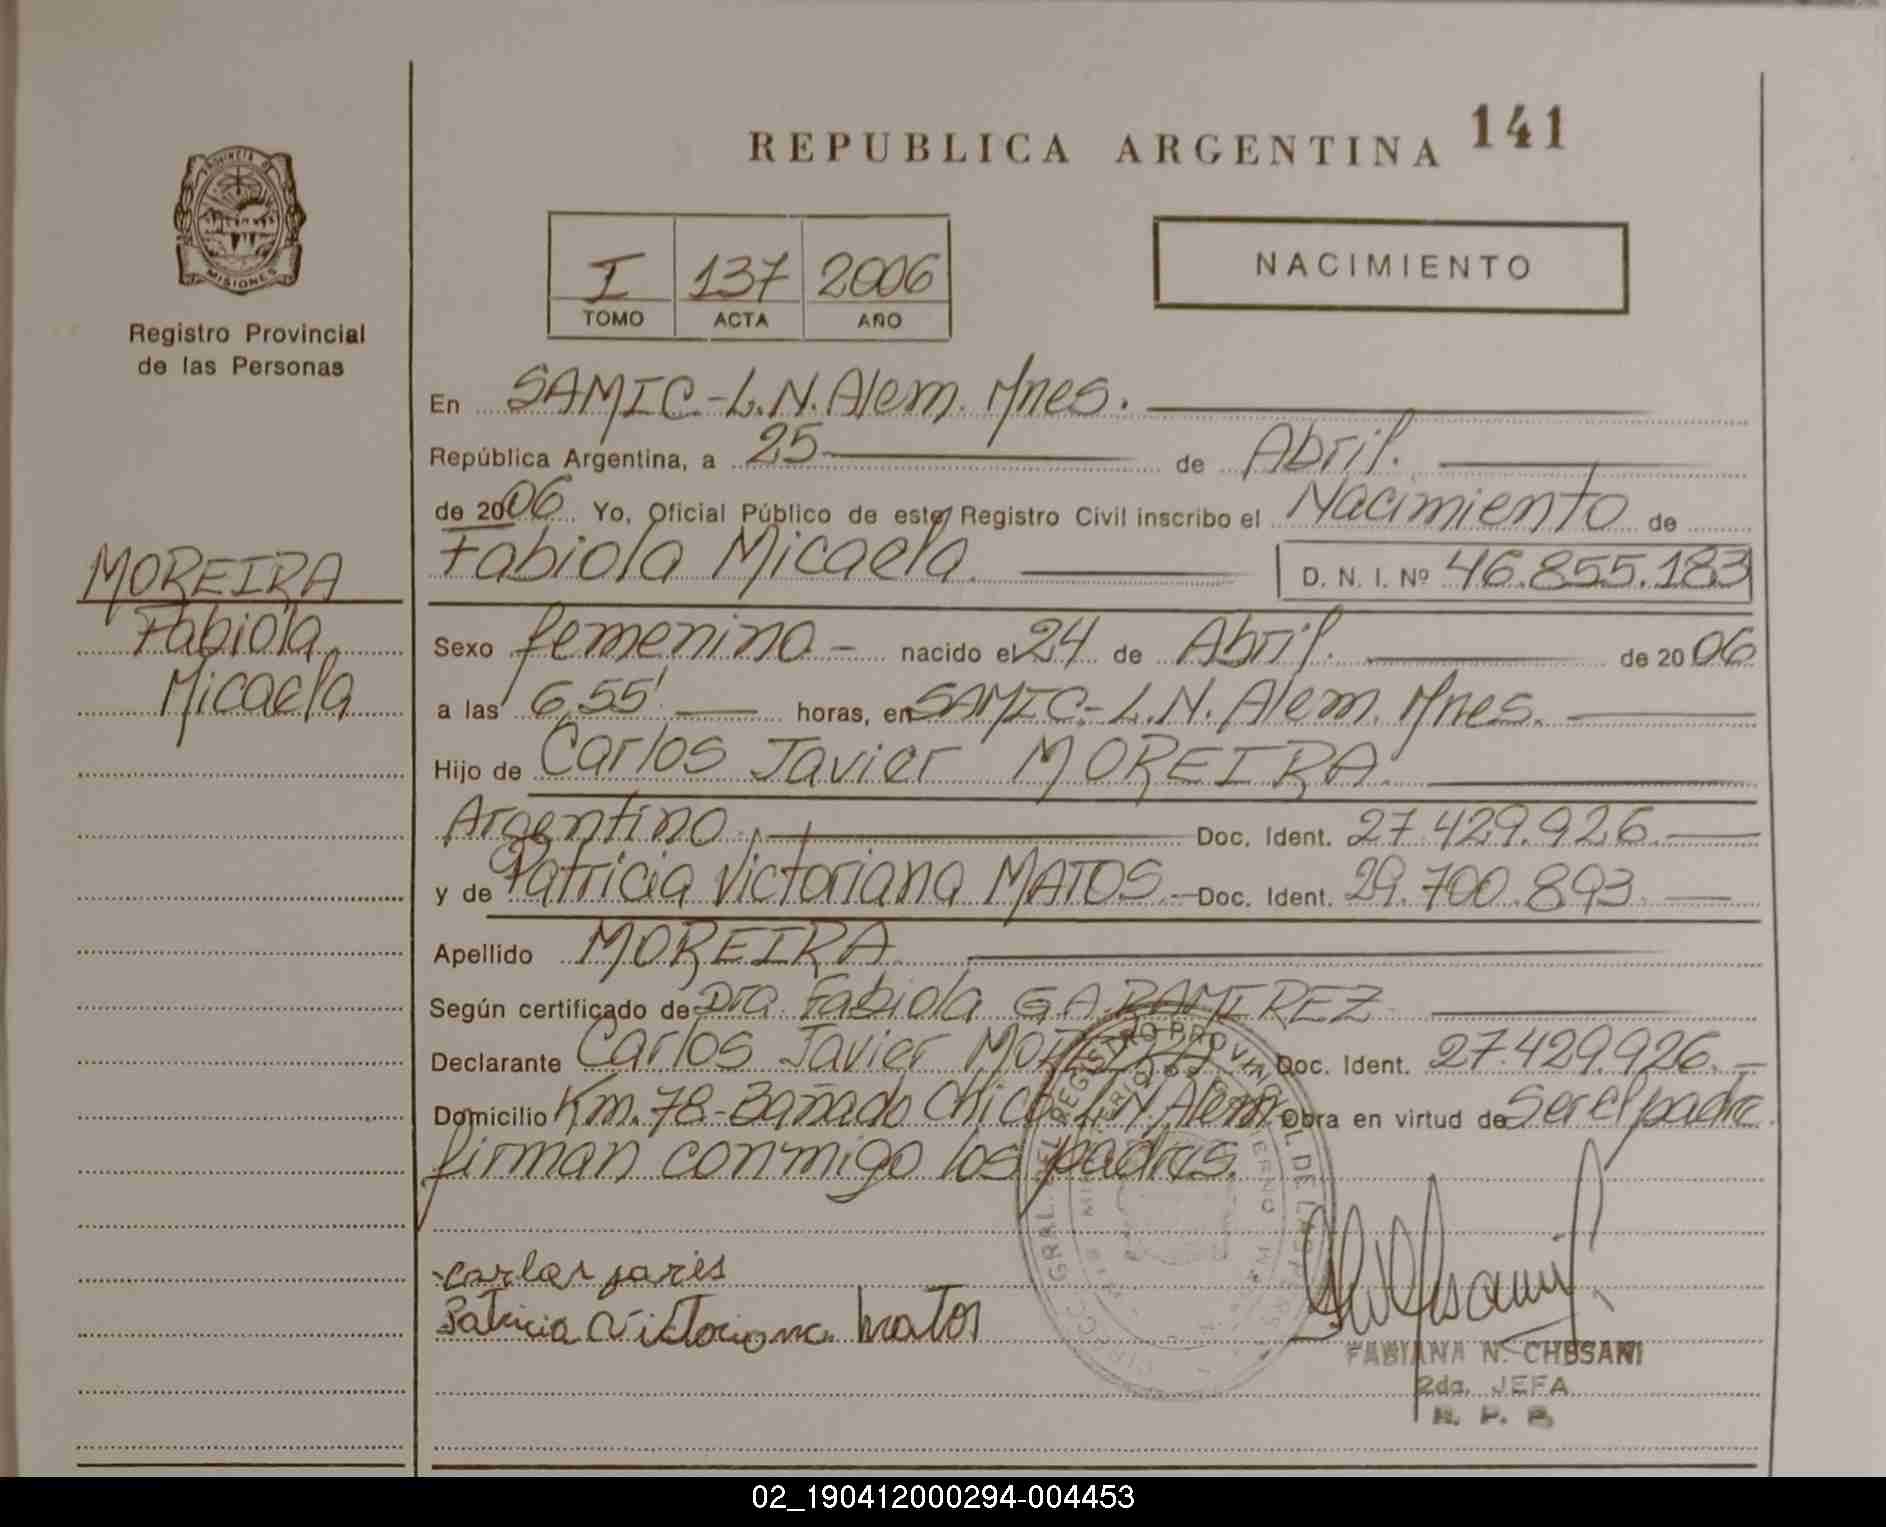 REPUBLICA ARGENTINA 141
PROVINCIA DE
MISIONES
Registro Provincial
de las Personas
I 137 2006
TOMO ACTA AÑO
NACIMIENTO
En SAMIC.-L.N.Alem. Mnes.
República Argentina, a 25 de Abril.
de 2006. Yo, Oficial Público de este Registro Civil inscribo el Nacimiento de
Fabiola Micaela. D. N. I. Nº 46.855.183
MOREIRA
Fabiola
Micaela
Sexo femenino - nacido el 24 de Abril. de 2006
a las 6,55' horas, en SAMIC.-L.N. Alem. Mnes.
Hijo de Carlos Javier MOREIRA.
Argentino. Doc. Ident. 27.429.926.
y de Patricia Victoriana MATOS.- Doc. Ident. 29.700.893.
Apellido MOREIRA
Según certificado de Dra. Fabiola G.A. RAMIREZ
Declarante Carlos Javier MOREIRA Doc. Ident. 27.429.926.-
Domicilio Km. 78-Bañado Chico L.N.Alem Obra en virtud de Ser el padre
firman conmigo los padres.
Patricia Victoriana Matos
FABIANA N. CHESANI
2da. JEFA
R. P. P.
02_190412000294-004453